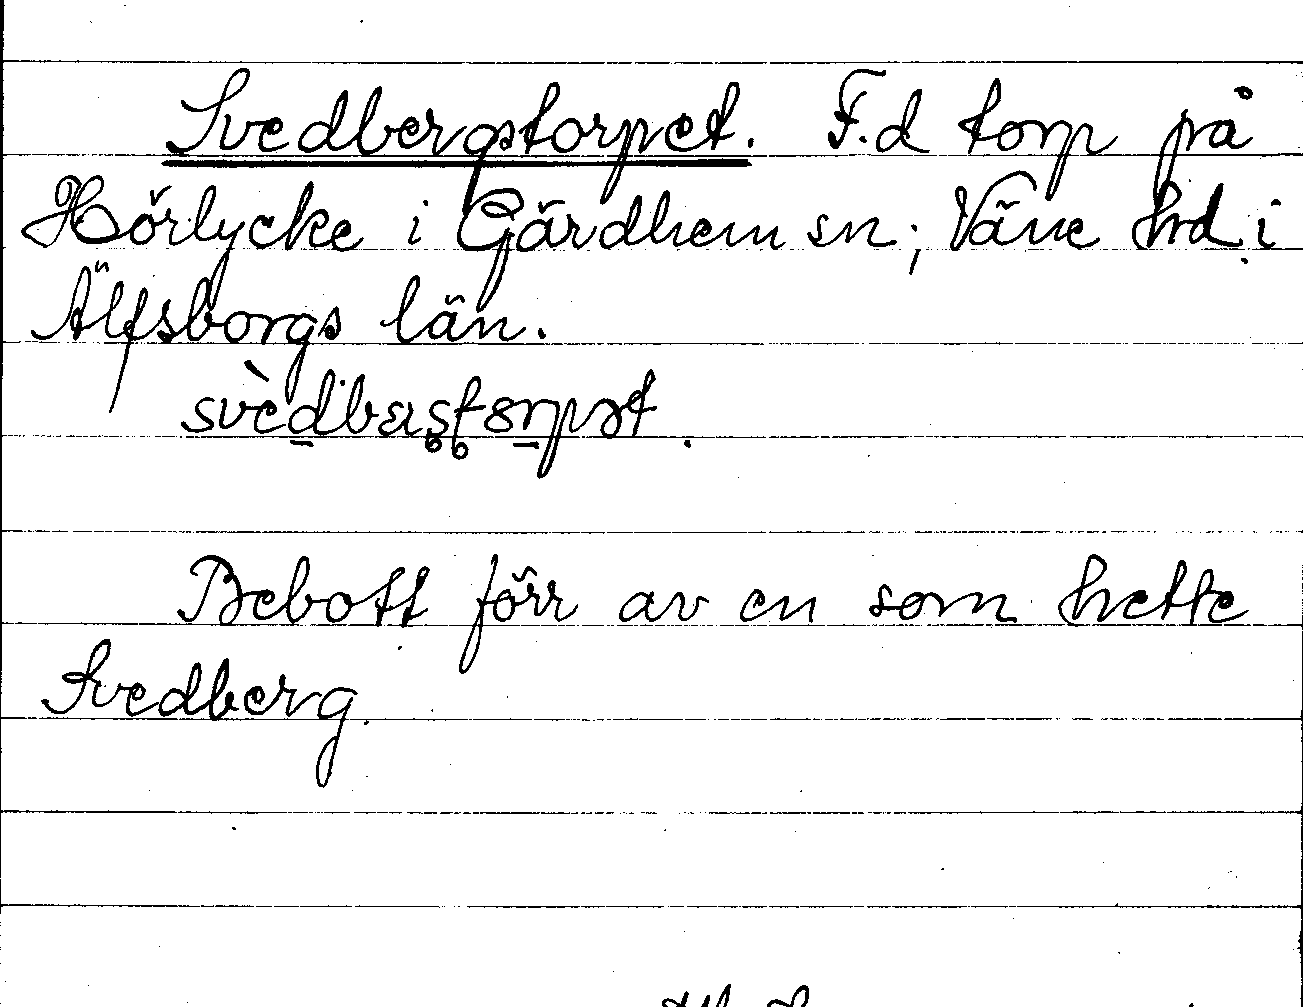 Svedbergstorpet. F.d torp på
Hörlycke i Gärdhem sn; Väne hd. i
Älfsborgs län.
Bebott förr av en som hette
Svedberg.